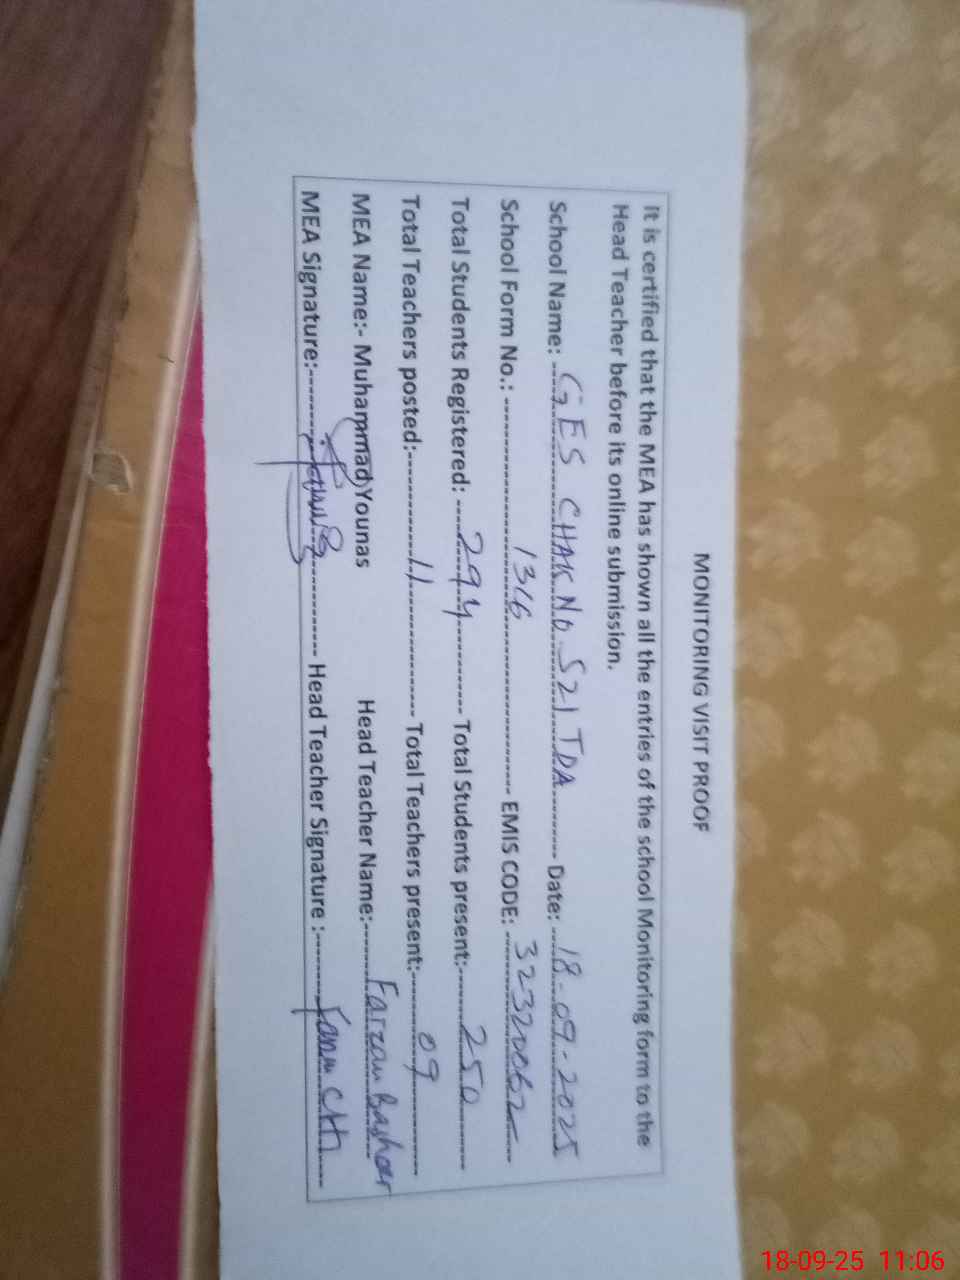 MONITORING VISIT PROOF
It is certified that the MEA has shown all the entries of the school Monitoring form to the
Head Teacher before its online submission.
School Name: GES CHAK No 521 TDA Date: 18-09-2025
School Form No.: 1316 EMIS CODE: 32320062
Total Students Registered: 294 Total Students present: 250
Total Teachers posted: 11 Total Teachers present: 09
MEA Name:- Muhammad Younas Head Teacher Name: Farzan Basheer
MEA Signature: Head Teacher Signature :
18-09-25 11:06